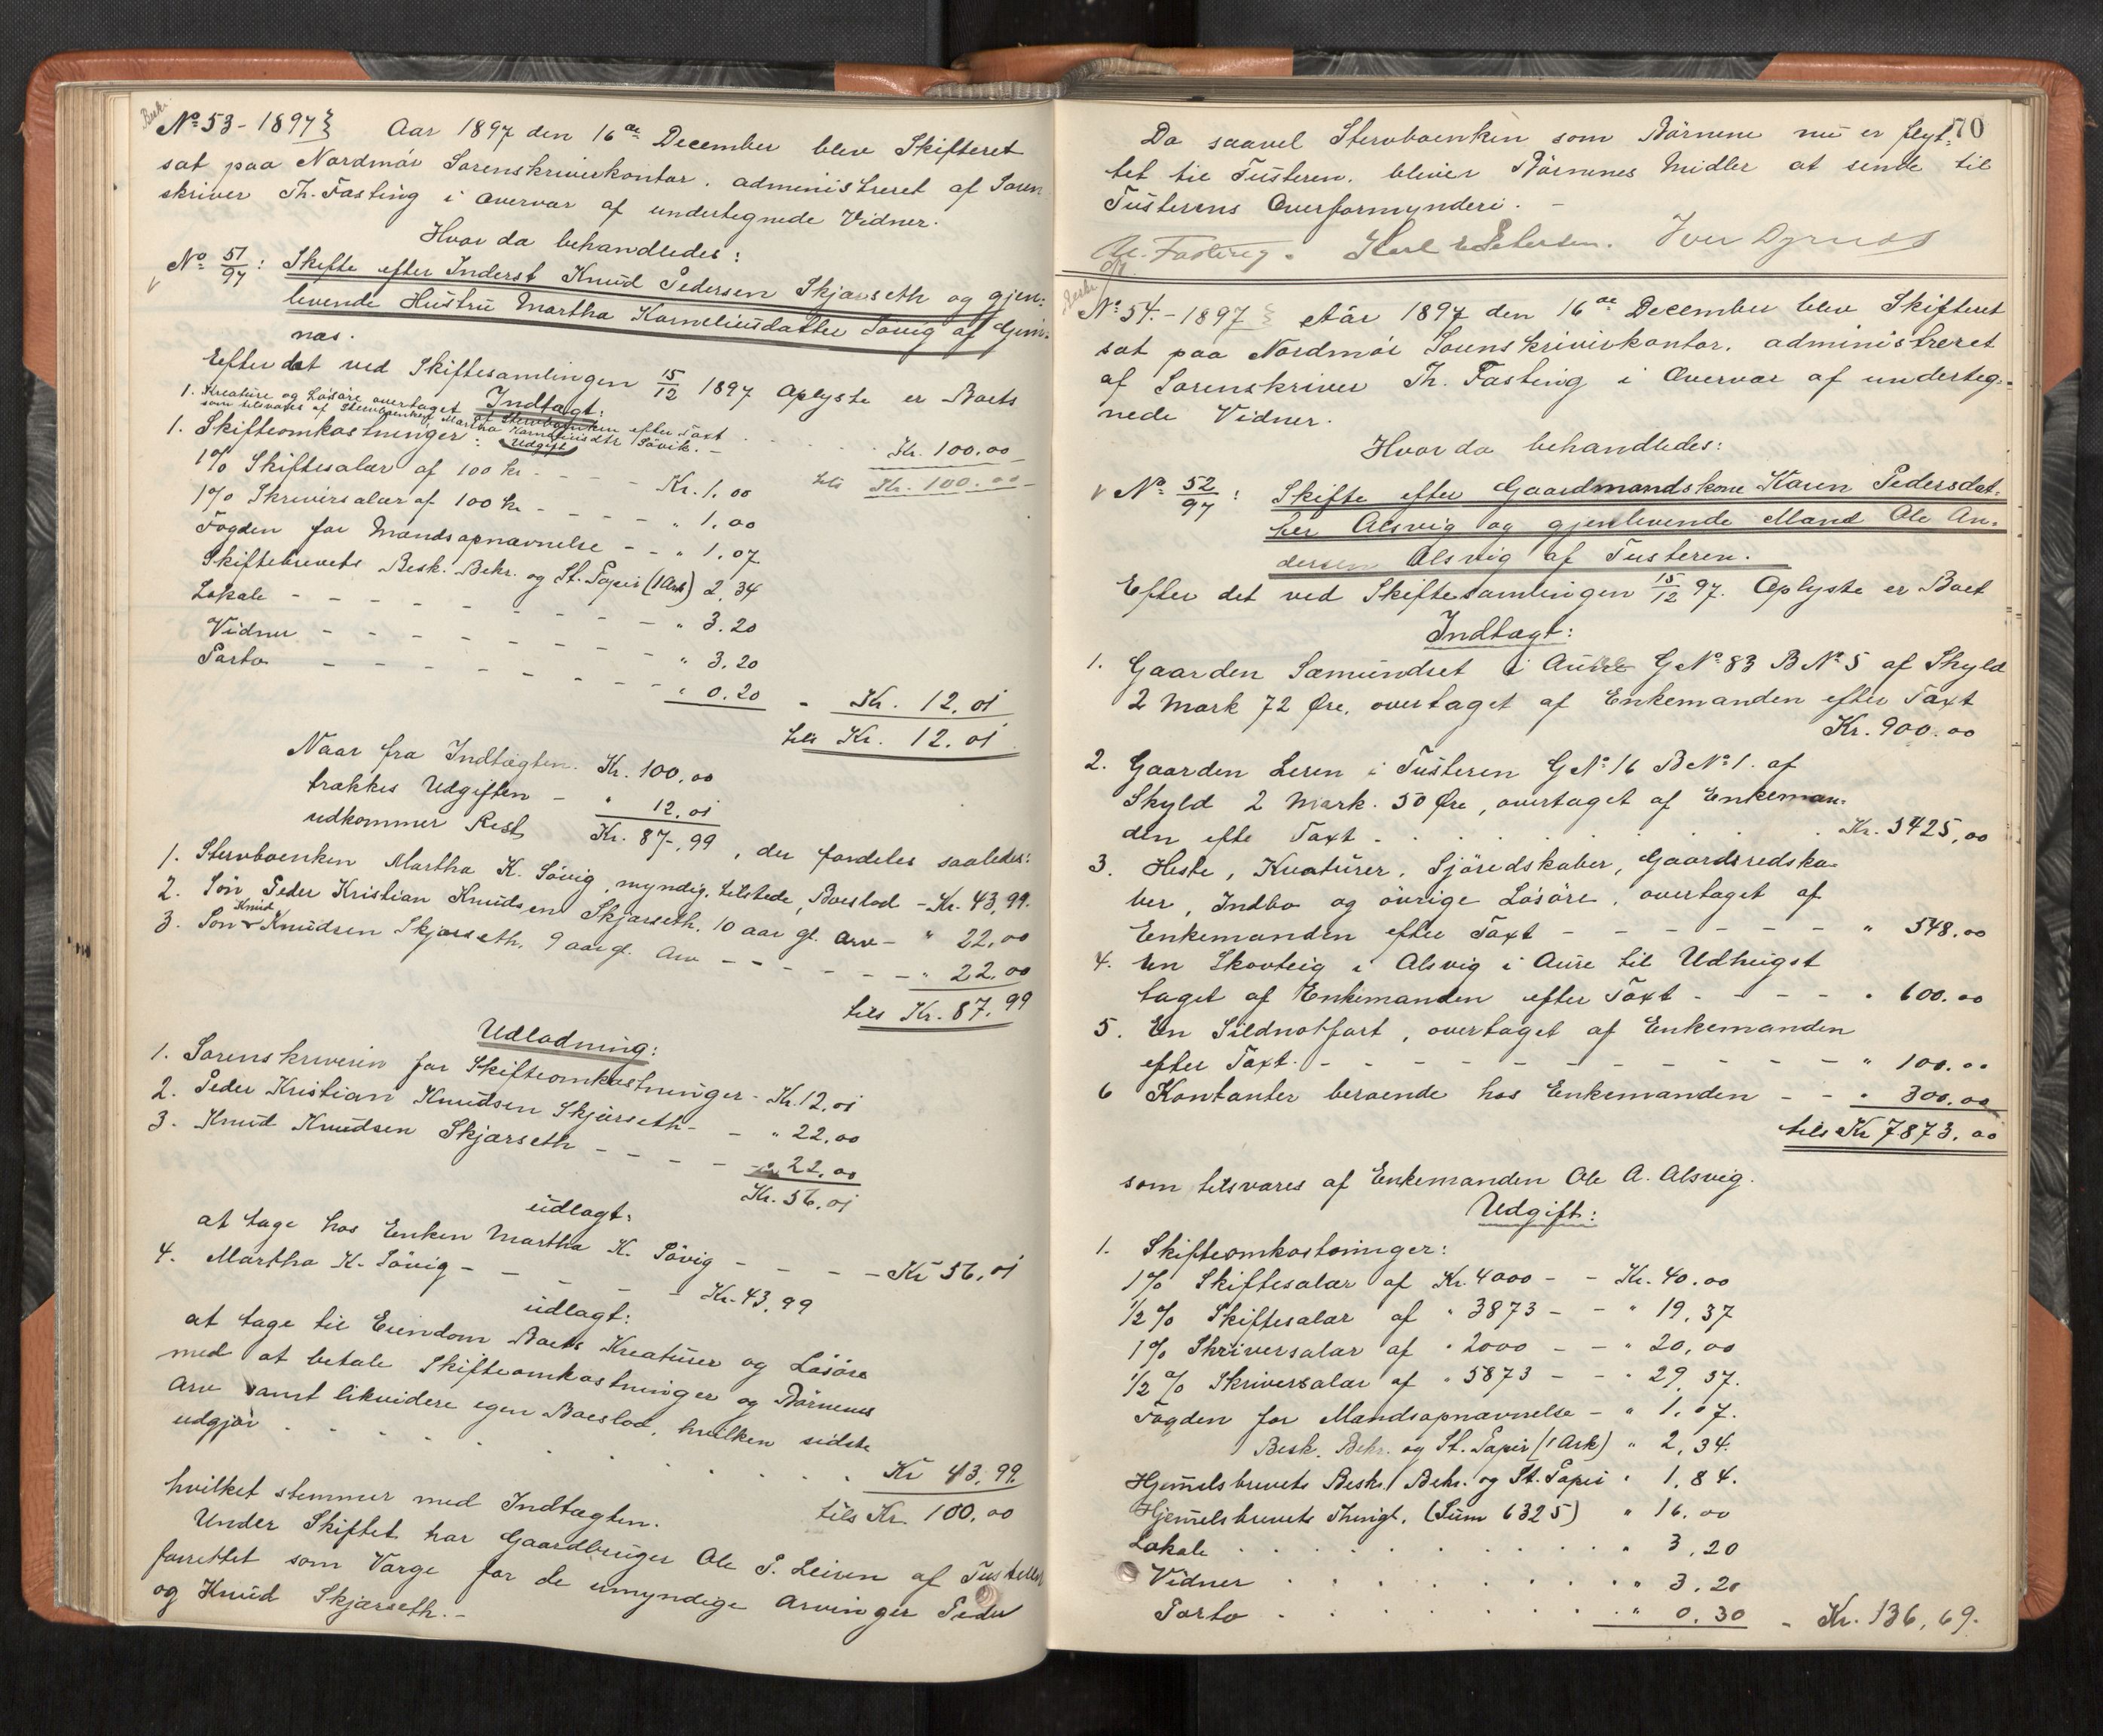 Besk.
No 53-1897 Aar 1897 den 16de December blev Skifteret
sat paa Nordmør Sorenskriverkontor, administreret af Soren
skriver Th. Fasting i Overvær af undertegnede Vidner.
Hvor da behandledes:
No 51/97: Skifte efter Inderst Knud Pedersen Skjærseth og gjen:
levende Hustru Martha Korneliusdatter Søvig af
næs.
Efter det ved Skiftesamlingen 15/12 1897 Oplyste er Boets
Indtægt:
1. Kreature og Løsøre overtaget af Stervboenken efter Taxt
som tilsvares af Stervboenken Martha Korneliusdtr Søvik. - Kr. 100.00
Udgift tils Kr. 100.00
1. Skifteomkostninger:
1% Skiftesalær af 100 Kr - - - Kr. 1.00
1% Skriversalær af 100 Kr - - - - " 1.00
Fogden for Mandsopnævnelse - - " 1.07
Skiftebrevets Besk. Behr. og St. Papir (1 Ark) 2.34
Lokale - - - - - - - - " 3.20
Vidner - - - - - - - - " 3.20
Porto - - - - - - - " 0.20 - Kr. 12.01
tils Kr. 12.01
Naar fra Indtægten Kr. 100.00
trækkes Udgiften - " 12.01
udkommer Rest Kr. 87.99, der fordeles saaledes:
1. Stervboenken Martha K. Søvig, myndig, tilstede, Boeslod - Kr. 43.99.
2. Søn Peder Kristian Knudsen Skjærseth, 10 aar gl. Arv - " 22.00
3. Søn Knud Knudsen Skjærseth, 9 aar gl. Arv - - - - - - " 22.00
tils Kr. 87.99
Udlodning:
1. Sorenskriveren for Skifteomkostninger - Kr. 12.01
2. Peder Kristian Knudsen Skjærseth - - " 22.00
3. Knud Knudsen Skjærseth - - - - - 22.00
Kr. 56.01
udlagt:
at tage hos Enken Martha K. Søvig - - - - Kr 56.01
4. Martha K. Søvig - - - - - Kr. 43.99
udlagt:
at tage til Eiendom Boets Kreaturer og Løsøre
med at betale Skifteomkostninger og Børnenes
Arv samt likvidere egen Boeslod, hvilken sidste
udgjør . . . . . . . . . . Kr 43.99.
tils Kr. 100.00
hvilket stemmer med Indtægten.
Under Skiftet har Gaardbruger Ole P. Leiren af Tusteren
forrettet som Værge for de umyndige Arvinger Peder
og Knud Skjærseth. -
70
Da saavel Stervboenken som Børnene nu er flyt:
tet til Tusteren, bliver Børnenes Midler at sende til
Tusterens Overformynderi. -
Th. Fasting. Karl Petersen. Iver Dyrnes
Besk.
No 54.-1897 Aar 1897 den 16de December blev Skifteret
sat paa Nordmør Sorenskriverkontor, administreret
af Sorenskriver Th. Fasting i Overvær af underteg:
nede Vidner.
Hvor da behandledes:
No 52/97: Skifte efter Gaardmandskone Karen Pedersdat:
ter Alsvig og gjenlevende Mand Ole An:
dersen Alsvig af Tusteren.
Efter det ved Skiftesamlingen 15/12 97. Oplyste er Boet
Indtægt:
1. Gaarden Sæmundset i Aure G No 83 B No 5 af Skyld
2 Mark 72 Øre, overtaget af Enkemanden efter Taxt
Kr. 900.00
2. Gaarden Leren i Tusteren G No 16 B No 1. af
Skyld 2 Mark. 50 Øre, overtaget af Enkeman:
den efte Taxt . . . . . . . Kr. 5425,00
3. Heste, Kreaturer, Sjøredskaber, Gaardsredska:
ber, Indbo og øvrige Løsøre, overtaget af
Enkemanden efter Taxt - - - - - - " 548.00
4. En Skovteig i Alsvig i Aure til Udhugst
taget af Enkemanden efter Taxt - - - - " 600.00
5. En Sildnotpart, overtaget af Enkemanden
efter Taxt - - - - - - - - - - - " 100.00
6 Kontanter beroende hos Enkemanden - - " 300.00
tils Kr 7873.00
som tilsvares af Enkemanden Ole A. Alsvig.
Udgift:
1. Skifteomkostninger:
1% Skiftesalær af Kr. 4000 - - Kr. 40.00
1/2% Skiftesalær af " 3873 - - " 19.37
1% Skriversalær af " 2000 - - " 20.00
1/2% Skriversalær af " 5873 - - " 29.37.
Fogden for Mandsopnævnelse - " 1.07.
Besk. Behr. og St. Papir (1 Ark) " 2.34.
Hjemmelsbrevets Besk. Behr. og St. Papir " 1.84.
Hjemmelsbrevets Thingl. (Sum 6325) " 16.00
Lokale . . . . . . . . . . . " 3.20
Vidner . . . . . . . . " 3.20
Porto . . . . . . . . " 0.30 - Kr. 136.69.